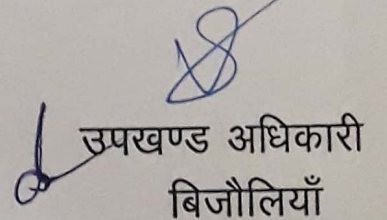 उपखण्ड अधिकारी
बिजौलियाँ